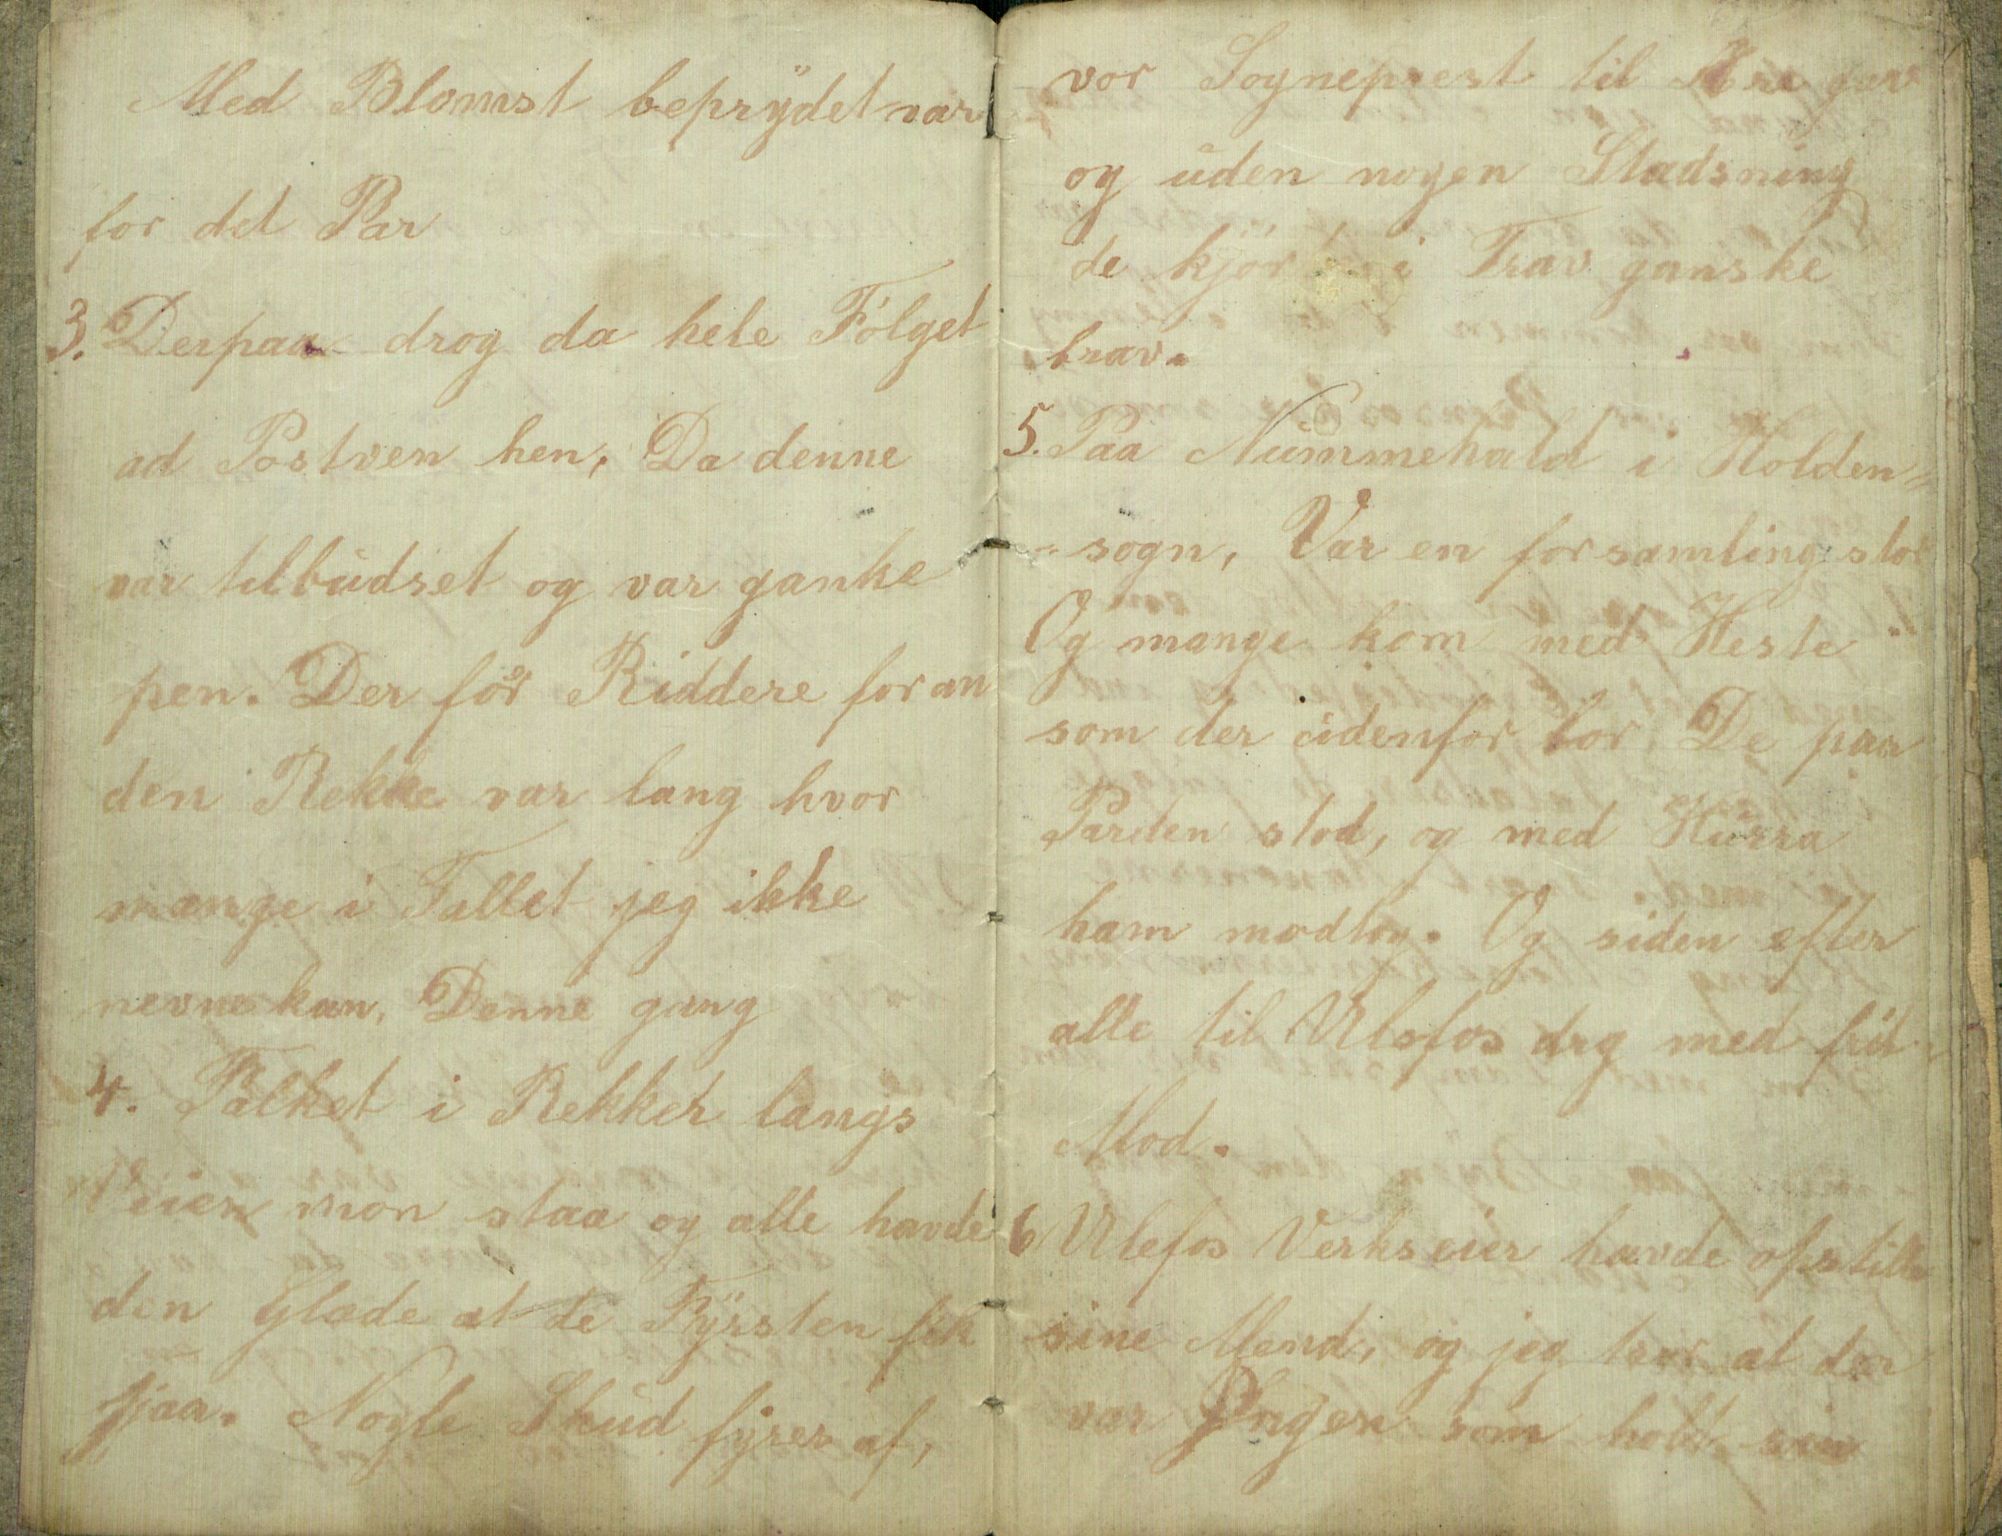 Med Blomst beprÿdet var
for det Par
3. Derpaa drog da hele Følget
ad Postven hen, Da denne
var tilbudset og var ganke
pen. Der før Riddere foran
den Rekke var lang hvor
mange i Tallet jeg ikke
nevne kan, Denne gang
4. Folket i Rekker langs
Veien mon staa og alle havde
den Glæde at de Fÿrsten fik
sjaa. Nogle Skud fyres af,
vor Sogneprest til Ære gav
og uden nogen Stadsning
de kjør i Trav ganske
brav.
5. Paa Nummehald i Holden-
-sogn, Var en forsamling stor
Og mange kom med Heste
som der udenfor bor De paa
Parden stod, og med Hurra
ham modtog. Og siden efter
alle til Ulefos drg med frit
Mod.
6 Ulefos Verkseier havde opstille
sine Mend, og jeg tror at der
var Ingen som holt sin